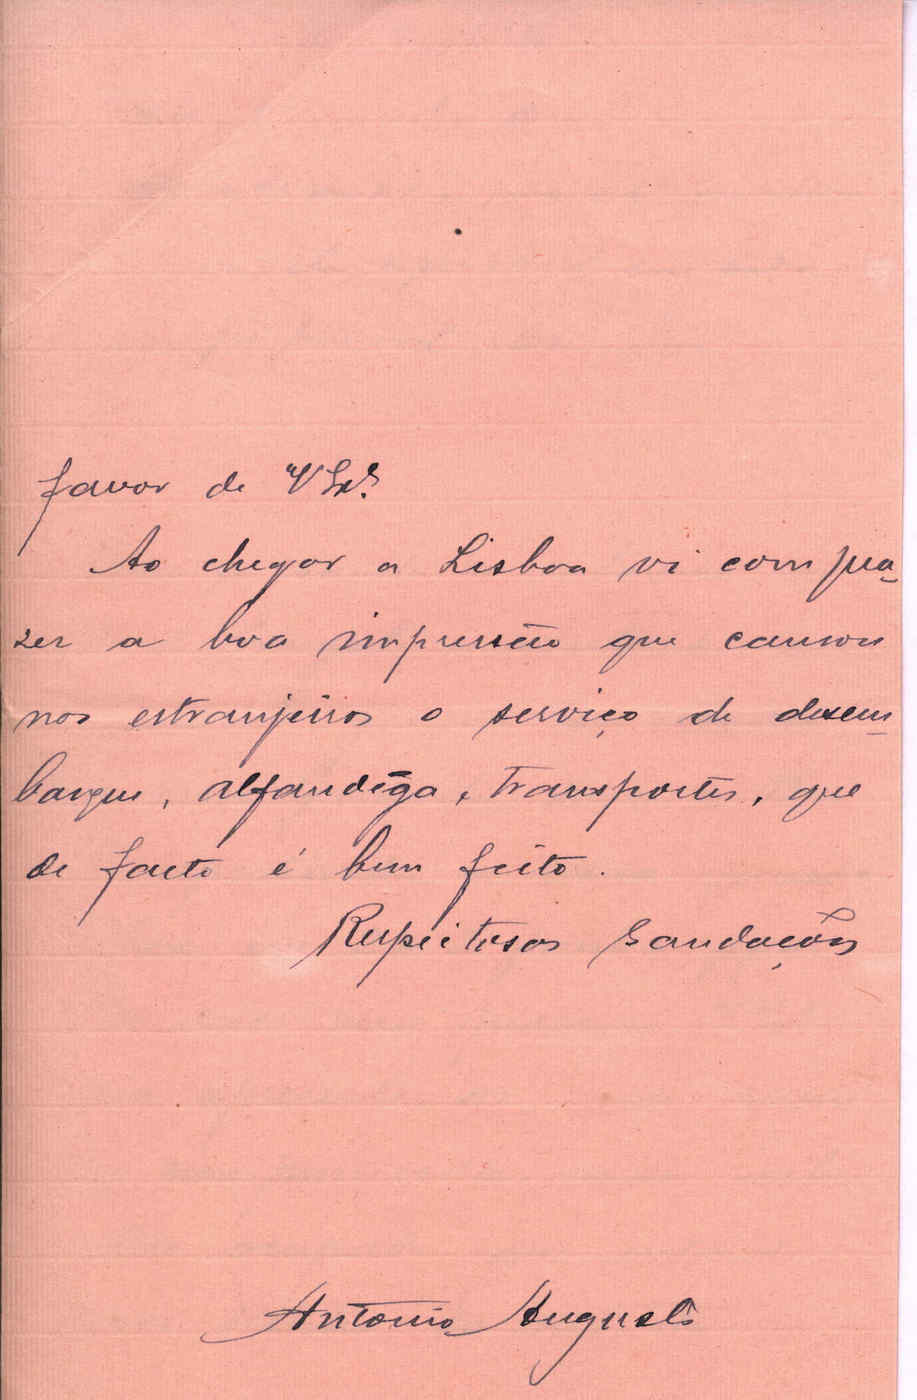 favor de V Ex.ª
Ao chegar a Lisboa vi com pra-
zer a boa impressão que causou
nos estranjeiros o serviço de desem-
barque, alfandêga, transportes, que
de facto é bem feito.
Respeitosas saudações
Antonio Augusto